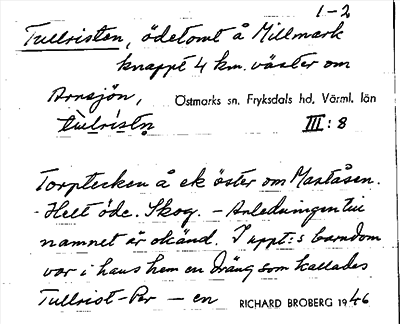 1-2
Tullristen, ödetomt å Millmark
knappt 4 km. väster om
Arnsjön, Östmarks sn, Fryksdals hd, Värml. län
tùlrìstn̥ III:8
Torptecken å ek öster om Maståsen.
- Helt öde. Skog. - Anledningen till
namnet är okänd. I uppt:s barndom
var i hans hem en dräng som kallades
Tullrist-Per - en RICHARD BROBERG 1946